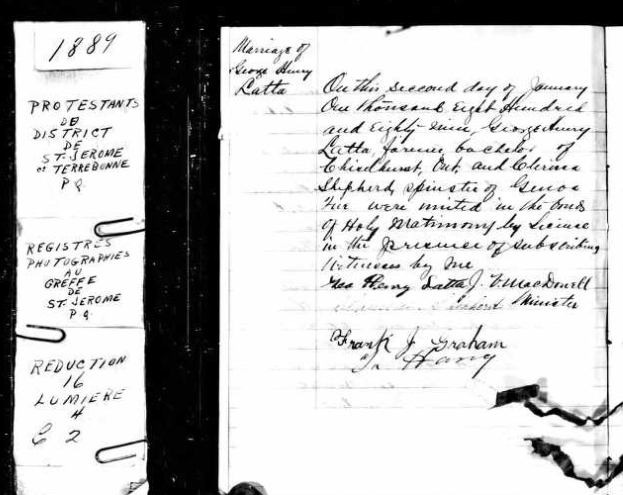 1889
PROTESTANTS
DE
DISTRICT
DE
ST. JEROME
et TERREBONNE
P Q.
REGISTRES
PHOTOGRAPHIES
AU
GREFFE
DE
ST. JEROME
P Q.
REDUCTION
16
LUMIERE
4
C 2
Marriage of
George Henry
Latta
On this second day of January
One thousand Eight Hundred
and Eighty nine, George Henry
Latta, farmer, bachelor of
Chiselhurst, Ont, and
Shepherd, spinster of Genoa
were united in the bonds
of Holy Matrimony by License
in the presence of subscribing
witnesses by me
Geo Henry Latta J. MacDowell
Minister
Frank J Graham